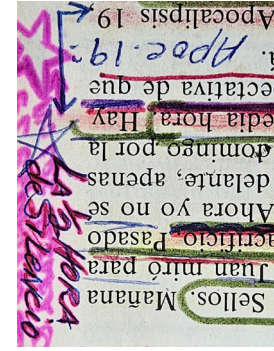 Sellos. Mañana
Juan miró para
acrificio. Pasado
Ahora yo no se
delante, apenas
domingo por la
edia hora. Hay
ectativa de que
á. Apoc. 19:
Apocalipsis 19,
LA ½ HORA
de SILENCIO